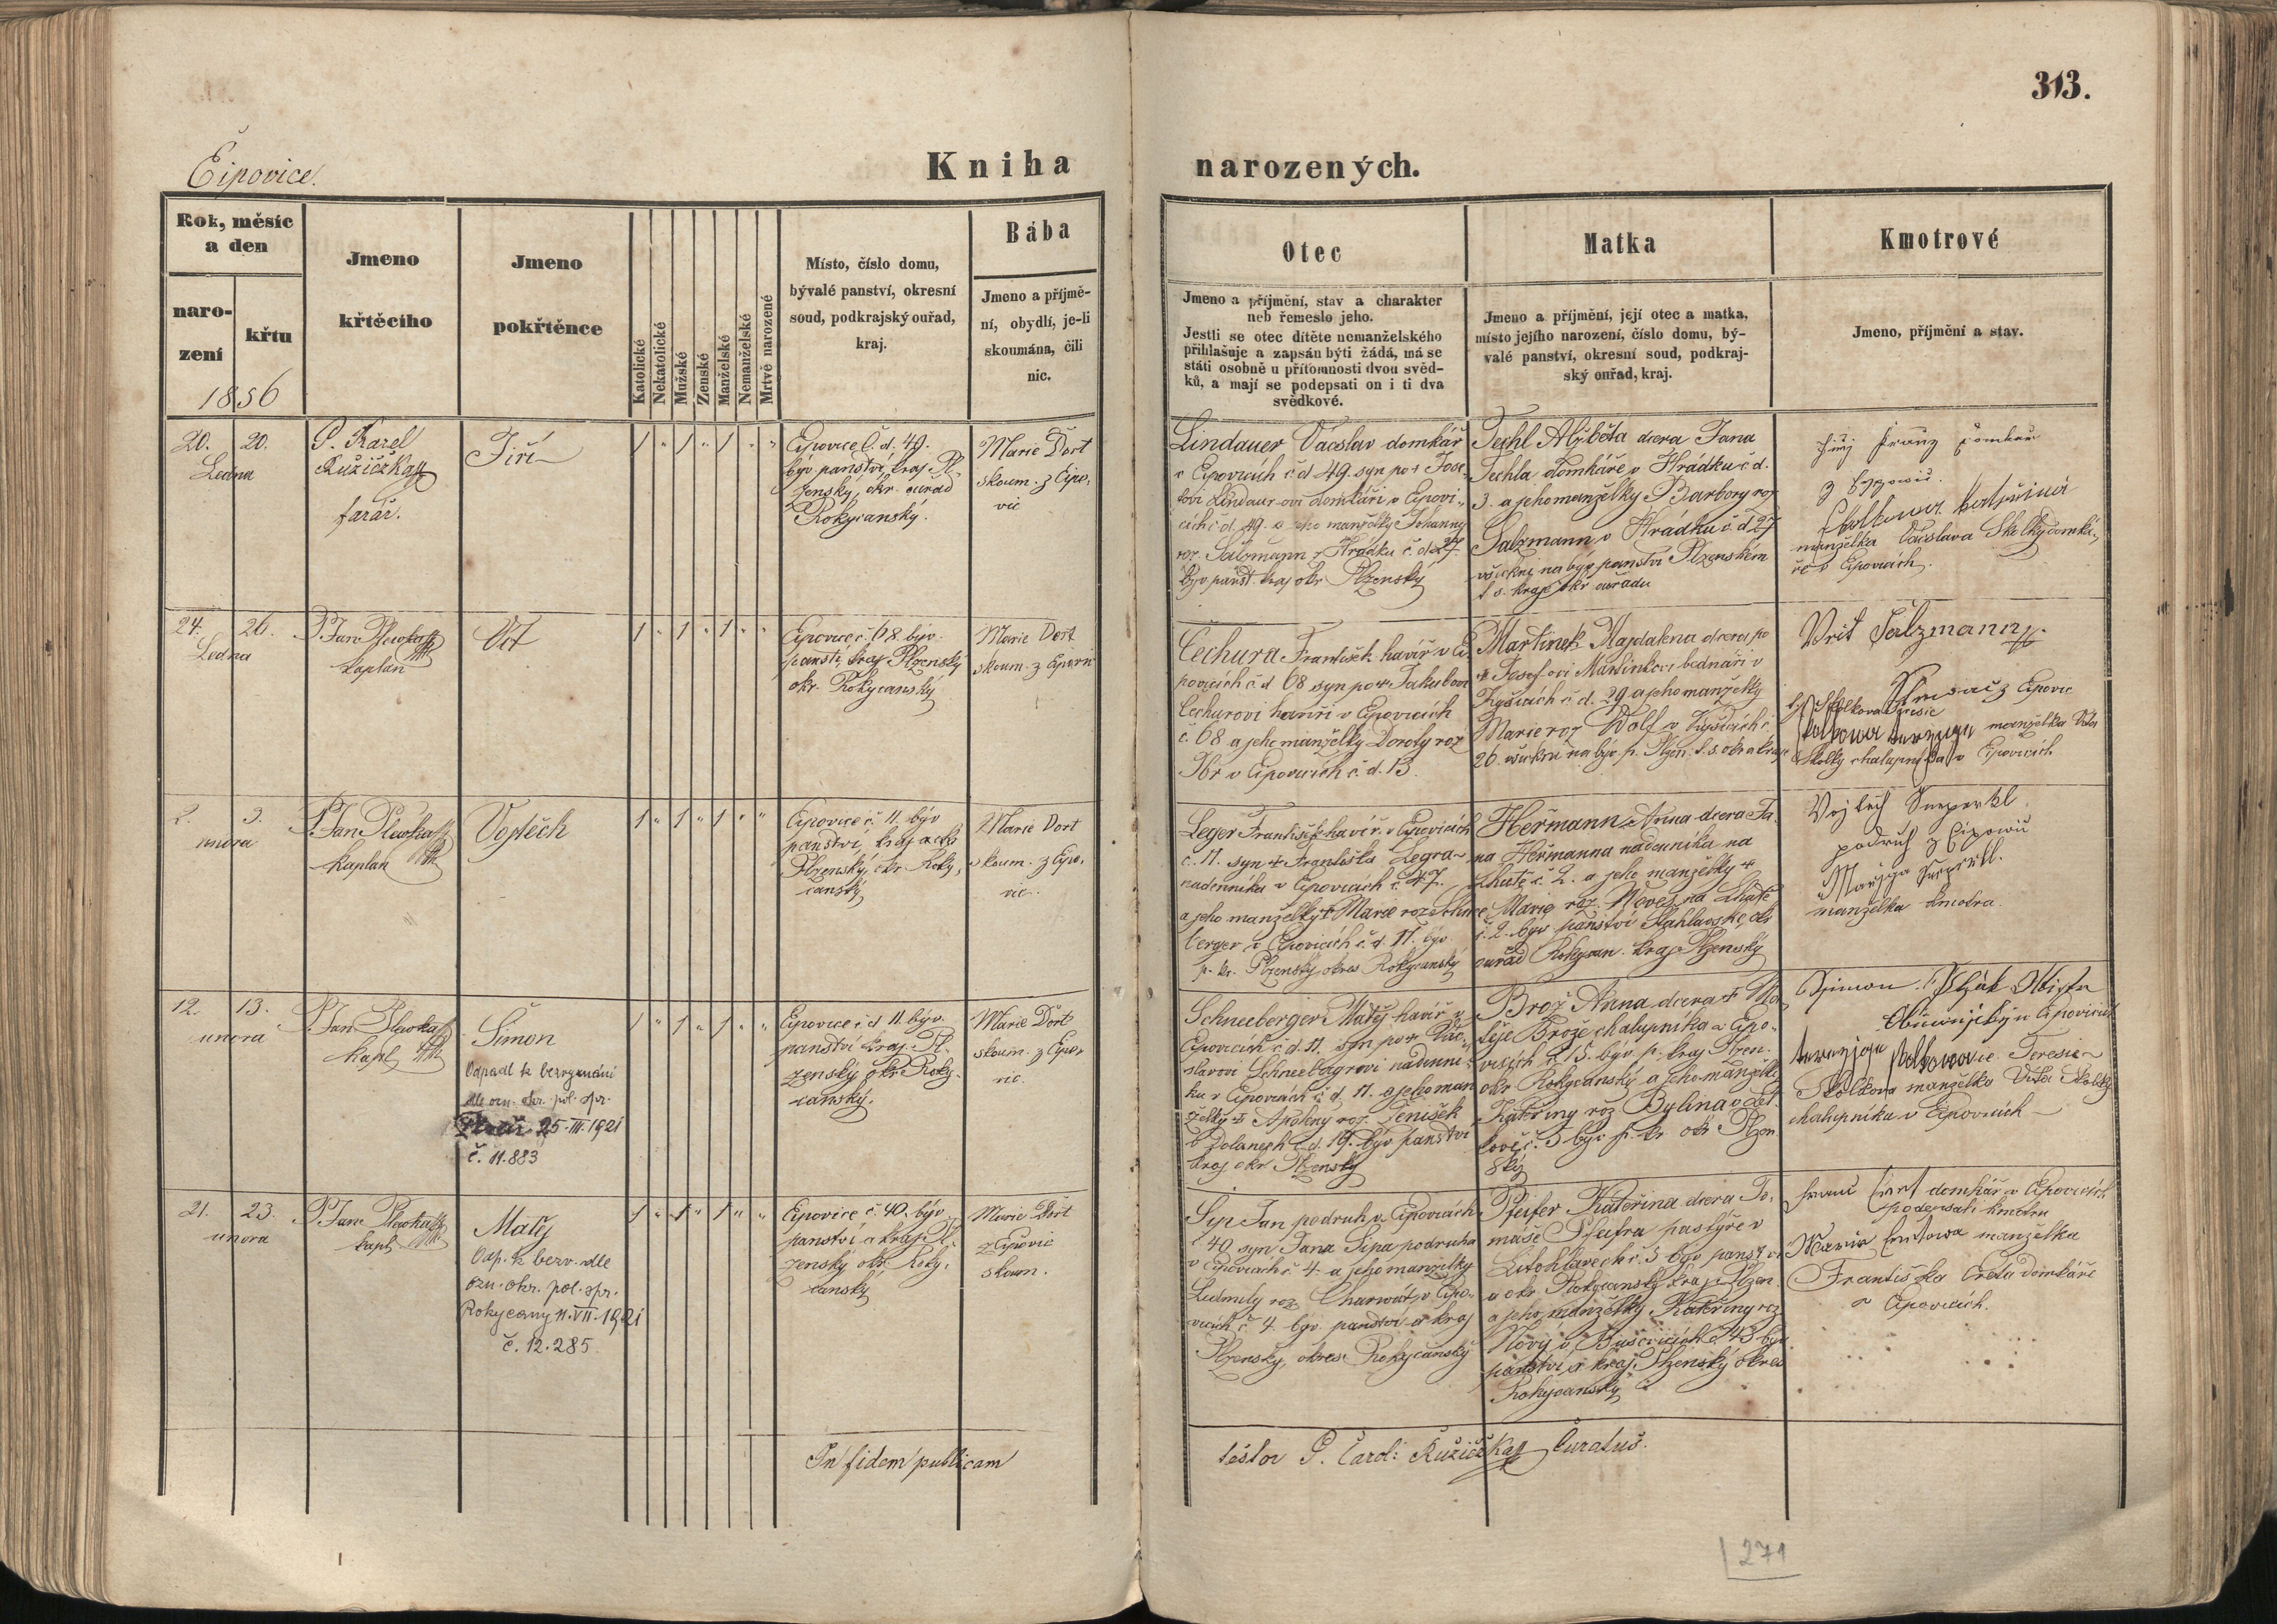 313.
Čipovice.
Kniha narozených.
Rok, měsíc
a den
naro-
zení
křtu
1856
Jmeno
křtěcího
Jmeno
pokřtěnce
Katolické
Nekatolické
Mužské
Ženské
Manželské
Nemanželské
Mrtvě narozené
Místo, číslo domu,
bývalé panství, okresní
soud, podkrajský ouřad,
kraj.
Bába
Jmeno a příjmě-
ní, obydlí, je-li
skoumána, čili
nic.
Otec
Jmeno a příjmění, stav a charakter
neb řemeslo jeho.
Jestli se otec dítěte nemanželského
přihlašuje a zapsán býti žádá, má se
státi osobně u přítomnosti dvou svěd-
ků, a mají se podepsati on i ti dva
svědkové.
Matka
Jmeno a příjmění, její otec a matka,
místo jejího narození, číslo domu, bý-
valé panství, okresní soud, podkraj-
ský ouřad, kraj.
Kmotrové
Jmeno, příjmění a stav.
20. 20.
Ledna
P. Karel
Růžička
farář.
Jiří
1 " 1 " 1 " "
Čipovice č. d. 49.
býv. panství, kraj Pl-
zenský, okr. ouřad
Rokycanský.
Marie Dort
skoum. z Čipo-
vic
Lindauer Václav domkář
v Čipovicích č d 49. syn po † Jose-
fovi Lindaur-ovi domkáři v Čipovi-
cích č d. 49. a jeho manželky Johanny
roz. Salzmann z Hrádku č. d 27.
býv panst. kraj okr Plzenský
Techl Alžběta dcera Jana
Techla domkáře v Hrádku č d.
3. a jeho manželky Barbory roz
Salzmann v Hrádku č d 27
všickni na býv panství Plzenském
t. s. kraje okr ouřadu
Jiřj Franz domkář
z
Skolkowa katržina
manželka Václava Skolky domká-
ře v Čipovicích.
24. 26.
Ledna
P. Jan Plewka
kaplan
Vít
1 " 1 " 1 " "
Čipovice č. 68. býv.
panství, kraj Plzenský
okr. Rokycanský
Marie Dort
skoum. z Čipovic
Cechura František havíř v Či-
povicích č d 68 syn po † Jakubovi
Cechurovi havíři v Čipovicích
č. 68 a jeho manželky Doroty roz
v Čipovicích č. d. 13.
Martinek Majdalena dcera po
† Josef-ovi Martinkovi bednáři v
Kyšicích č d. 29 a jeho manželky
Marie roz Wolf v Kyšicích č
26. všickni na býv. p. Plzen. t. s. okr a kraje
Vrit Salzmann
z Čipovic
Skolkova Terezie
Skolkowa terezyga manželka Víta
Skolky chalupníka v Čipovicích
2. 3.
února
P. Jan Plewka
kaplan
Vojtěch
1 " 1 " 1 " "
Čipovice č. 11. býv
panství, kraj a okr
Plzenský, okr Roky-
canský
Marie Dort
skoum. z Čipo-
vic.
Leger František havíř v Čipovicích
č. 11. syn † Františka Legra
nadenníka v Čipovicích č 47.
a jeho manželky † Marie roz Schnee-
berger v Čipovicích č d. 11. býv
p. kr. Plzenský okres Rokycanský
Heřmann Anna dcera Ja-
na Heřmanna nadenníka na
Lhutě č. 2. a jeho manželky †
Marie roz. Woves na Lhutě
č. 2. býv panství Stáhlavské, okr
ouřad Rokycan. kraj Plzenský
Vojtech
podruh z Čipowic
Marjga
manželka kmotra.
12. 13.
února
P. Jan Plewka
kapl
Šimon
Odpadl k bezvyznání
dle ozn. okr. pol. spr.
25. III. 1921
č. 11.883
1 " 1 " 1 " "
Čipovice č d 11. býv.
panství kraj. Pl-
zenský okr. Roky-
canský.
Marie Dort
skoum. z Čipo-
vic.
Schneeberger Matěj havíř v
Čipovicích č. d. 11. syn po † Vác-
slavovi Schneebergrovi nadenní-
ku v Čipovicích č d. 11. a jeho man
želky † Apoleny roz. Jenišek
v Dolanech č d. 19. býv panství
kraj okr Plzenský
Brož Anna dcera † Ma-
těje Brože chalupníka v Čipo-
vicích č. 15. býv. p. kraj Plzen.
okr. Rokycanský a jeho manželky
Kateřiny roz Bylina v Let
kově č. 5 býv p. kr. okr Plzen
ský
Sjimon
v Čipovicích
terezyga skolkowa Teresie
Skolkova manželka Víta Skolky
chalupníka v Čipovicích
21. 23.
února
P. Jan Plewka
kapl
Matěj
Odp. k bezv. dle
ozn. okr. pol. spr.
Rokycany 11. VII. 1921
č. 12.285
1 " 1 " 1 " "
Čipovice č. 40. býv.
panství a kraj Pl-
zenský okr. Roky-
canský
Marie Dort
z Čipovic
skoum.
Sýp Jan podruh v Čipovicích
č 40 syn Jana Sipa podruha
v Čipovicích č 4. a jeho manželky
Ludmily roz Charwát v Čipo-
vicích č. 4 býv panství a kraj
Plzenský, okres Rokycanský
Pfeifer Kateřina dcera To-
máše Pfeifra pastýře v
Litohlavech č. 3 býv panství
a okr. Rokycanský kraj. Plzen.
a jeho manželky Kateřiny roz
Nový v Bušovicích č 43 býv
panství a kraj. Plzenský okres
Rokycanský
domkář v Čipovicích
podepsati kmotra
Maria manželka
Františka domkáře
v Čipovicích.
In fidem publicam
testor P. Carol: Růžička Curatus.
271